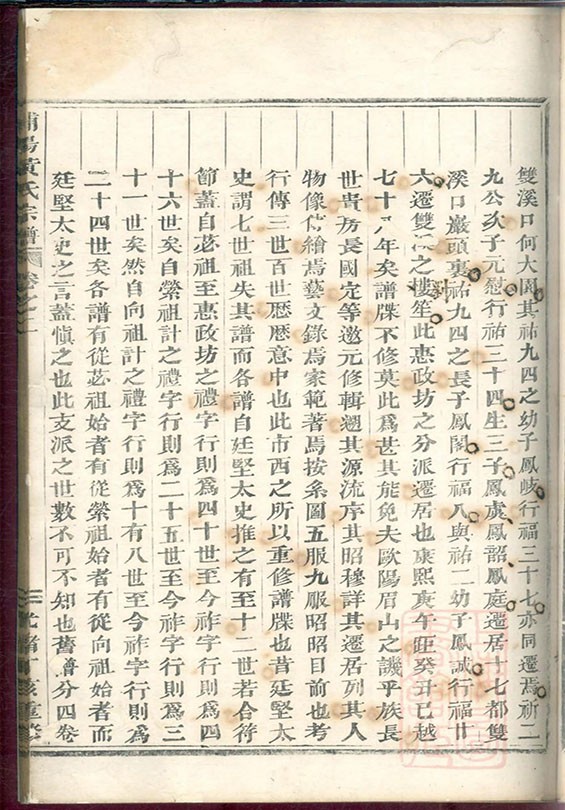 雙溪口何大園其祐九四之幼子鳳岐行福三十七亦同遷焉祈二
九公次子元慰行祐三十四生三子鳳虞鳳韶鳳庭遷居十七都雙
溪口巖頭裏祐九四之長子鳳閣行福八與祐二幼子鳳誠行福廿
六遷雙溪之樓笙此惠政坊之分派遷居也康熙庚午距癸丑已越
七十八年矣譜牒不修莫此為甚其能免夫歐陽眉山之譏乎族長
世貴房長國定等邀元修輯遡其源流序其昭穆詳其遷居列其人
物像傳繪焉藝文錄焉家範著焉按系圖五服九服昭昭目前也考
行傳三世百世歷歷意中也此市西之所以重修譜牒也昔廷堅太
史謂七世祖失其譜而各譜自廷堅太史推之有至十二世若合符
節蓋自苾祖至惠政坊之禮字行則為四十世至今祚字行則為四
十六世矣自縈祖計之禮字行則為二十五世至今祚字行則為三
十一世矣然自向祖計之禮字行則為十有八世至今祚字行則為
二十四世矣各譜有從苾祖始者有從縈祖始者有從向祖始者而
廷堅太史之言蓋愼之也此支派之世數不可不知也舊譜分四卷
浦陽黃氏宗譜 卷之一